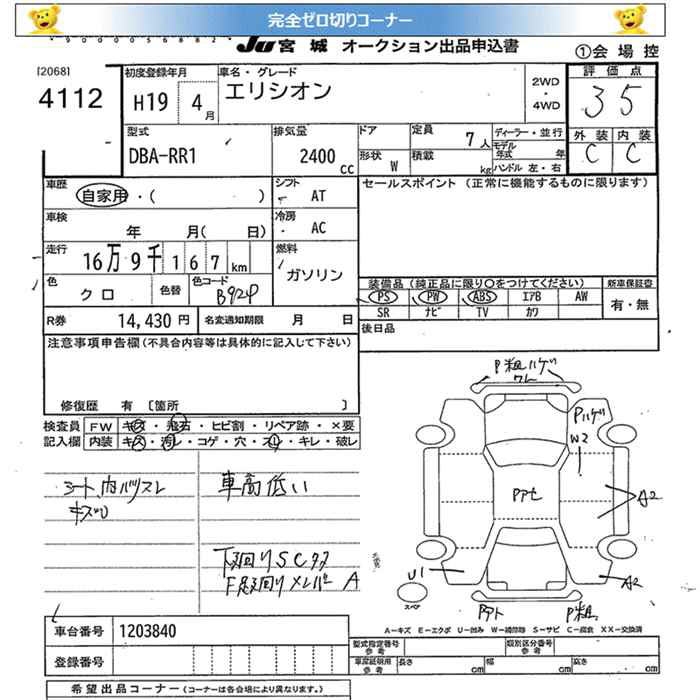 完全ゼロ切りコーナー
JU 宮城 オークション出品申込書
①会場控
[2068]
4112
初度登録年月
H19 4月
車名・グレード
エリシオン
2WD・4WD
評価点
3.5
外装 内装
C C
型式
DBA-RR1
排気量
2400cc
ドア
形状 W
定員 7人
積載 kg
ディーラー・並行
モデル年式 年
ハンドル 左・右
車歴
自家用・( )
シフト
AT
セールスポイント (正常に機能するものに限ります)
車検
年 月( 日)
冷房
AC
走行
16万9千167km
燃料
ガソリン
色
クロ
色替
色コード
B92P
装備品 (純正品に限り○をつけてください)
新車保証書
PS PW ABS エアB AW
有・無
SR ナビ TV カワ
R券 14,430円
名変通知期限 月 日
後日品
注意事項申告欄 (不具合内容等は具体的に記入して下さい)
修復歴 有 [箇所 ]
検査員 FW キズ・飛石・ヒビ割・リペア跡・×要
記入欄 内装 キズ・汚レ・コゲ・穴・スレ・キレ・破レ
シート、内バリスレ
キズ
車高低い
下廻りSCサ
P粗ハゲ
ワレ
Pハゲ
W2
A2
U1
A2
スペア
P粗
A
A=キズ E=エクボ U=凹み W=補修跡 S=サビ C=腐食 XX=交換済
車台番号 1203840
型式指定番号 参考
類別区分番号 参考
登録番号
車庫証明用 参考
長さ cm
幅 cm
高さ cm
希望出品コーナー (コーナーは各会場により異なります。)